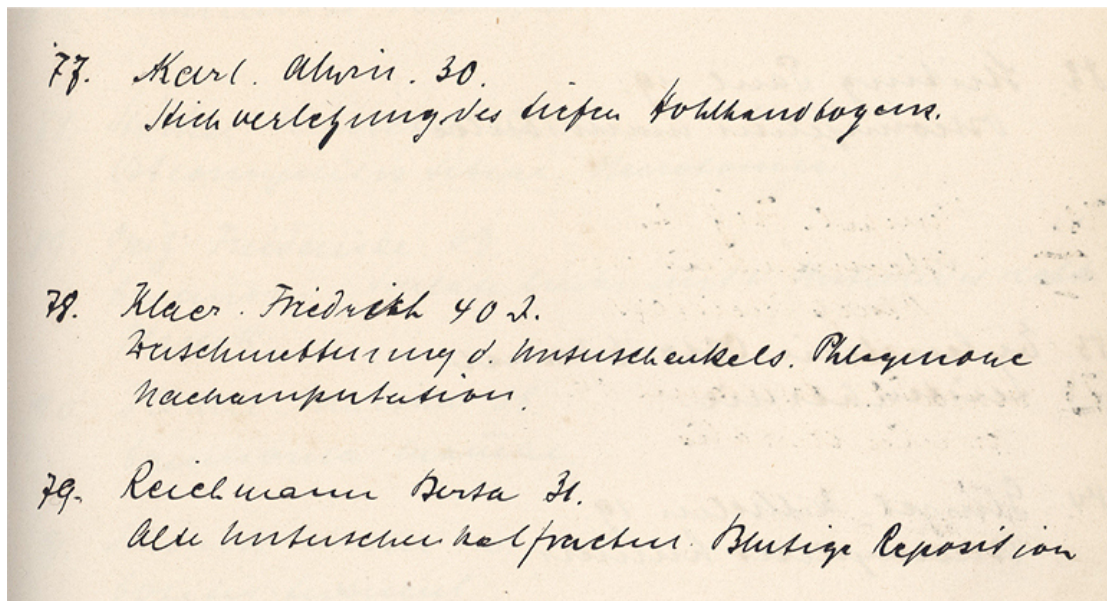 77. Karl. Alwin. 30.
Stichverletzung des tiefen Hohlhandbogens.
78. Klaer. Friedrich 40 J.
Zerschmetterung d. Unterschenkels. Phlegmone
Nachamputation.
79. Reichmann Berta 31.
Alte Unterschenkelfractur. Blutige Reposition